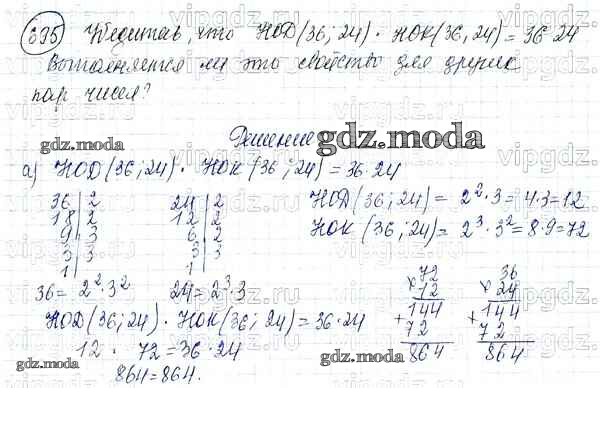 695 Убедитесь, что НОД(36; 24) · НОК(36, 24) = 36·24
Выполняется ли это свойство для других
пар чисел?
Решение
gdz.moda
gdz.moda
а) НОД(36; 24) · НОК(36; 24) = 36·24
36 | 2
18 | 2
9 | 3
3 | 3
1
24 | 2
12 | 2
6 | 2
3 | 3
1
НОД(36; 24) = 2²·3 = 4·3 = 12
НОК(36; 24) = 2³·3² = 8·9 = 72
36 = 2²·3²
24 = 2³·3
НОД(36; 24) · НОК(36; 24) = 36·24
12 · 72 = 36·24
864 = 864.
× 72
12
+ 144
72
864
× 36
24
+ 144
72
864
gdz.moda
gdz.moda
gdz.moda
vipgdz.ru